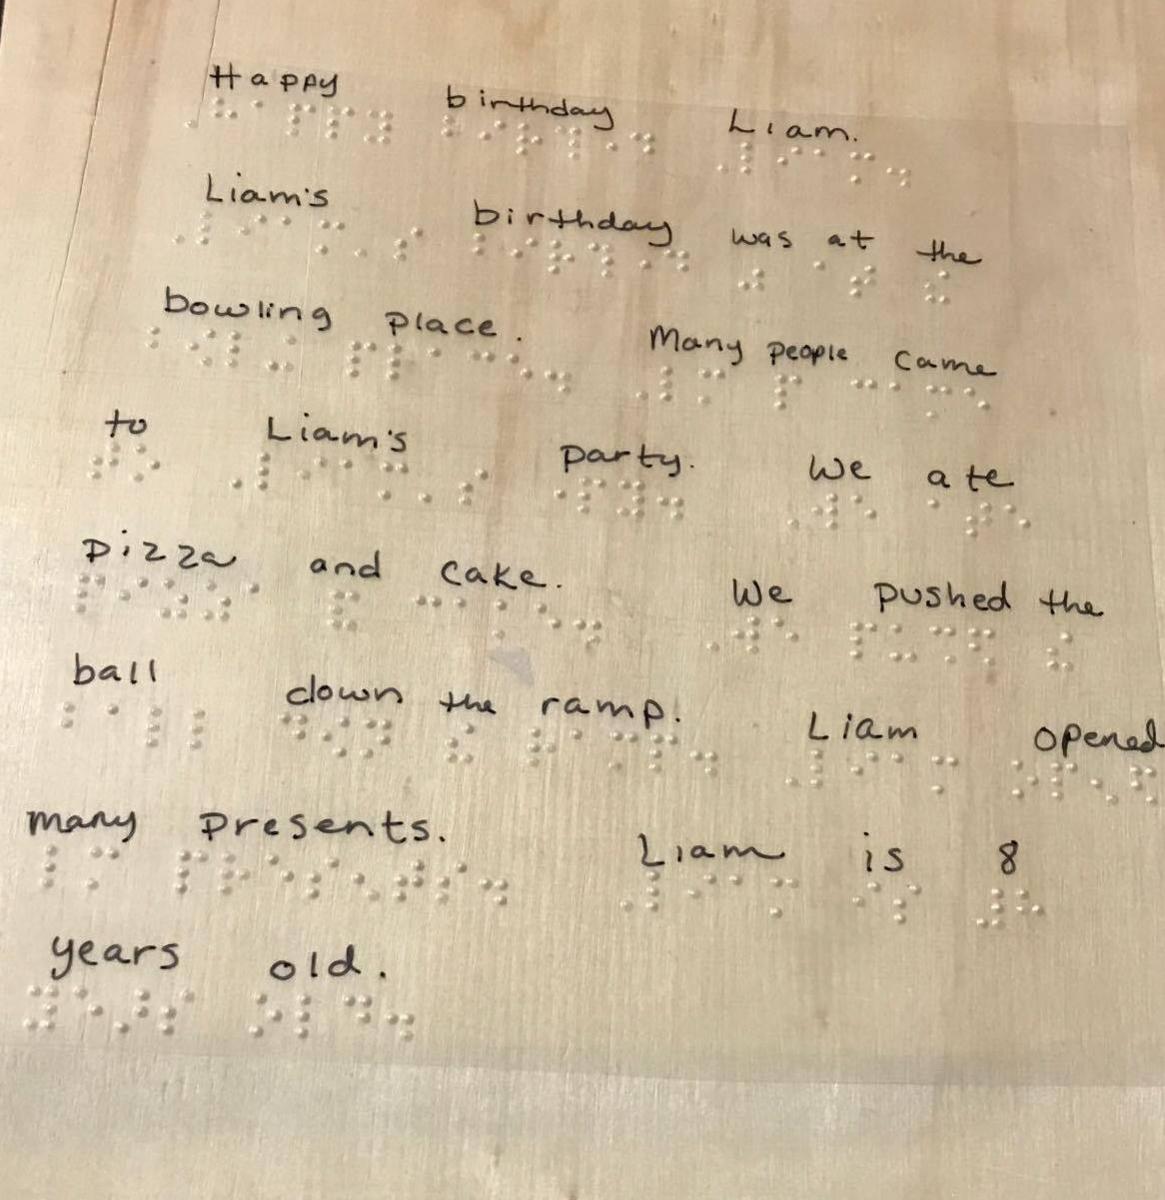 Happy birthday Liam.
Liam's birthday was at the
bowling place. Many people came
to Liam's party. We ate
pizza and cake. We pushed the
ball down the ramp. Liam opened
many presents. Liam is 8
years old.